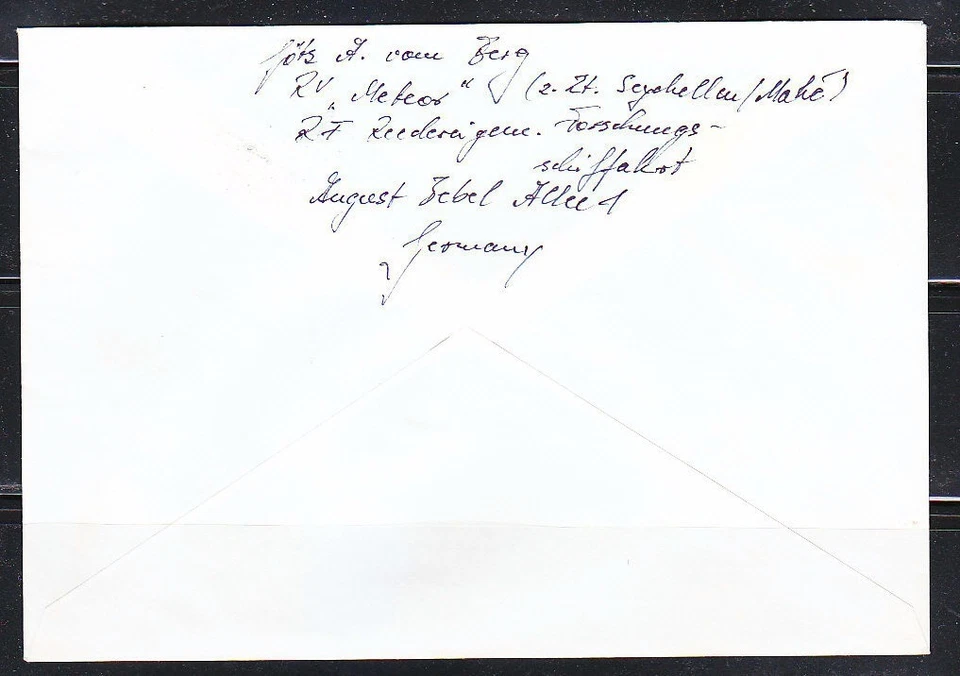 Götz A. vom Berg
RV „Meteor“ (z. Zt. Seychellen/Mahé)
RF Reedereigem. Forschungs-
schiffahrt
August Bebel Allee 1
Germany